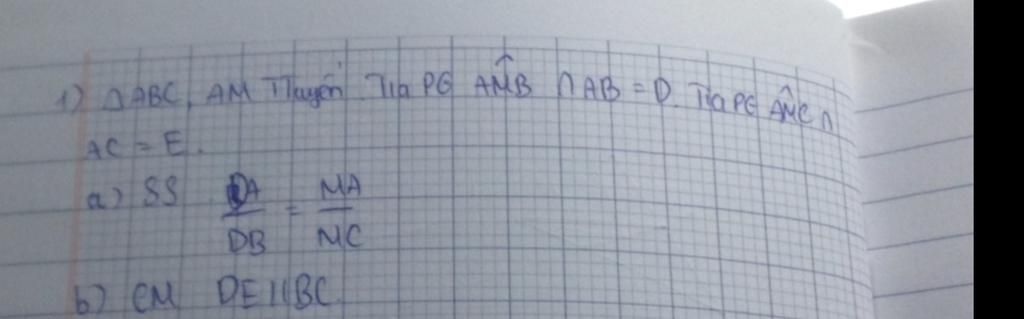 1) △ABC, AM Tuyến. Tia PG AM̂B ∩ AB = D. Tia PG AM̂C ∩
AC = E.
a) SS DA/DB = MA/MC
b) CM DE//BC